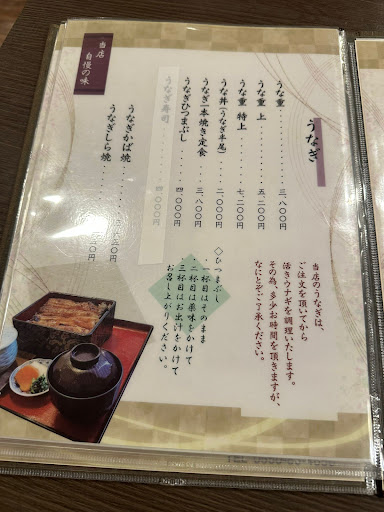 当店
自慢の味
うなぎ
うな重 ........ 三、八〇〇円
うな重 上 ........ 五、二〇〇円
うな重 特上 ........ 七、二〇〇円
うな丼(うなぎ半尾) .... 二、〇〇〇円
うなぎ一本焼き定食 ... 三、八〇〇円
うなぎひつまぶし .... 四、〇〇〇円
うなぎ寿司 ........ 四、〇〇〇円
うなぎかば焼
うなぎしら焼
◇ひつまぶし
・一杯目はそのまま
二杯目は薬味をかけて
三杯目はお出汁をかけて
お召し上がりください。
当店のうなぎは、
ご注文を頂いてから
活きウナギを調理いたします。
その為、多少お時間を頂きますが、
なにとぞご了承ください。